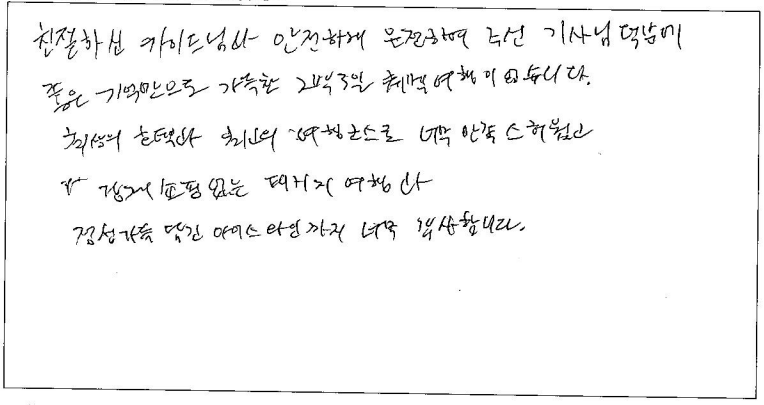 친절하신 가이드님과 안전하게 운전하여 주신 기사님 덕남에
좋은 기억만으로 가득한 2박3일 퀘백여행이였습니다.
최상의 호텔과 최고의 여행코스로 너무 만족스러웠고
강제쇼핑 없는 패키지 여행과
정성가득 담긴 아이스와인까지 너무 감사합니다.